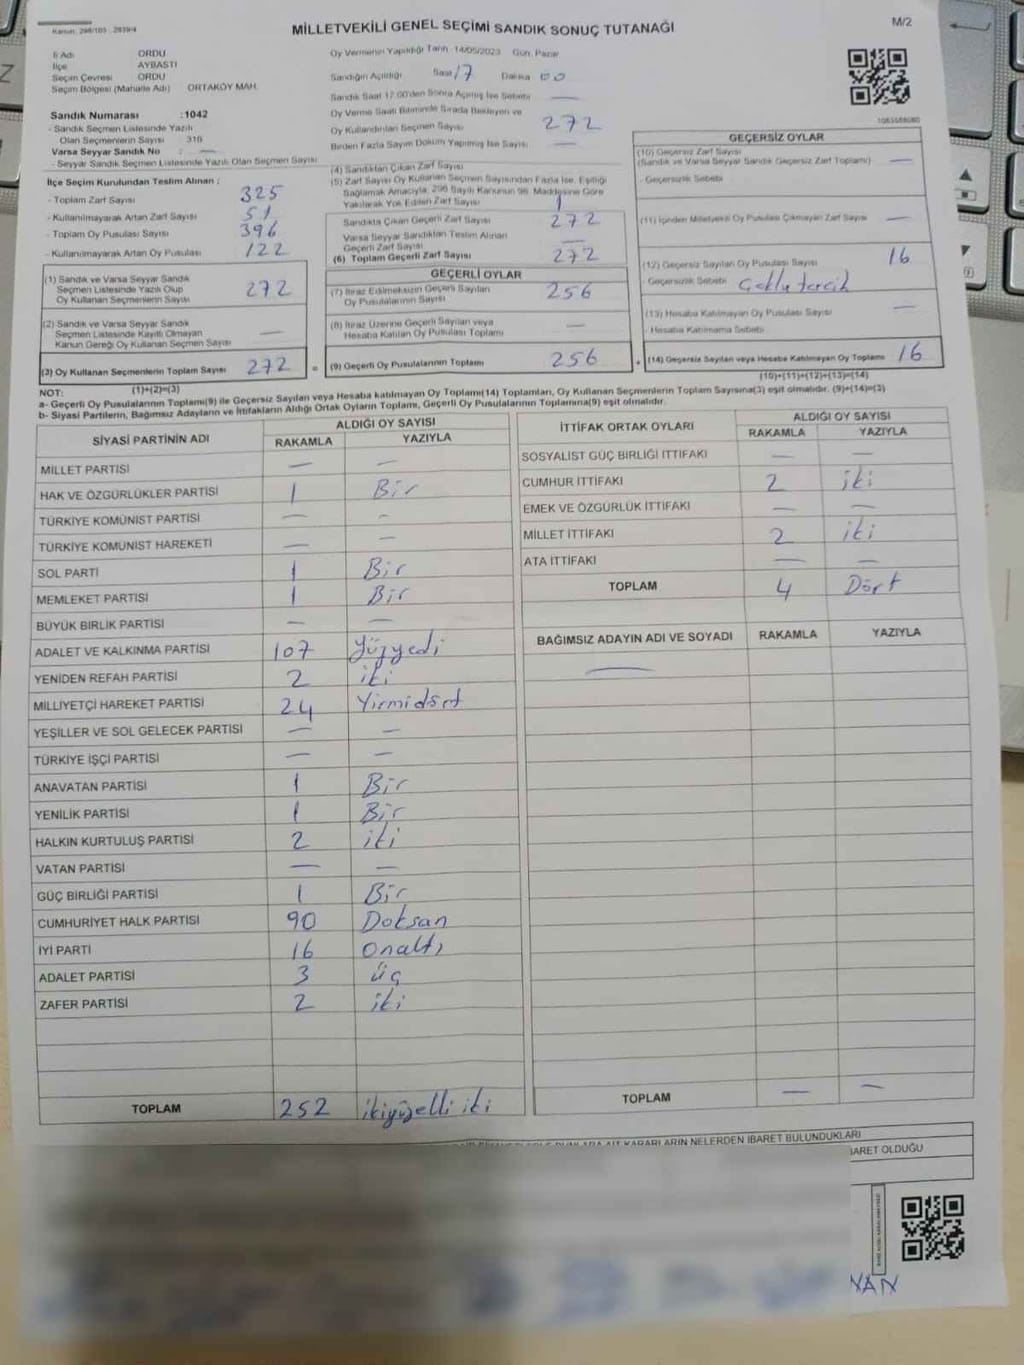 Kanun: 298/105 - 2839/4
MİLLETVEKİLİ GENEL SEÇİMİ SANDIK SONUÇ TUTANAĞI
M/2
İl Adı ORDU
İlçe AYBASTI
Seçim Çevresi ORDU
Seçim Bölgesi (Mahalle Adı) ORTAKÖY MAH.
Oy Vermenin Yapıldığı Tarih :14/05/2023 Gün: Pazar
Sandığın Açıldığı Saat 17 Dakika 00
Sandık Saat 17:00'den Sonra Açılmış İse Sebebi —
Oy Verme Saati Bitiminde Sırada Bekleyen ve
Oy Kullandırılan Seçmen Sayısı 272
Birden Fazla Sayım Dökum Yapılmış İse Sayısı —
Sandık Numarası :1042
- Sandık Seçmen Listesinde Yazılı
Olan Seçmenlerin Sayısı 316
Varsa Seyyar Sandık No : —
- Seyyar Sandık Seçmen Listesinde Yazılı Olan Seçmen Sayısı
İlçe Seçim Kurulundan Teslim Alınan :
- Toplam Zarf Sayısı 325
- Kullanılmayarak Artan Zarf Sayısı 51
- Toplam Oy Pusulası Sayısı 396
- Kullanılmayarak Artan Oy Pusulası 122
(1) Sandık ve Varsa Seyyar Sandık
Seçmen Listesinde Yazılı Olup
Oy Kullanan Seçmenlerin Sayısı 272
(2) Sandık ve Varsa Seyyar Sandık
Seçmen Listesinde Kayıtlı Olmayan
Kanun Gereği Oy Kullanan Seçmen Sayısı —
(3) Oy Kullanan Seçmenlerin Toplam Sayısı 272 =
(1)+(2)=(3)
(4) Sandıktan Çıkan Zarf Sayısı
(5) Zarf Sayısı Oy Kullanan Seçmen Sayısından Fazla İse, Eşitliği
Sağlamak Amacıyla, 298 Sayılı Kanunun 98. Maddesine Göre
Yakılarak Yok Edilen Zarf Sayısı 1
Sandıkta Çıkan Geçerli Zarf Sayısı 272
Varsa Seyyar Sandıktan Teslim Alınan
Geçerli Zarf Sayısı —
(6) Toplam Geçerli Zarf Sayısı 272
GEÇERLİ OYLAR
(7) İtiraz Edilmeksizin Geçerli Sayılan
Oy Pusulalarının Sayısı 256
(8) İtiraz Üzerine Geçerli Sayılan veya
Hesaba Katılan Oy Pusulası Toplamı —
(9) Geçerli Oy Pusulalarının Toplamı 256 +
GEÇERSİZ OYLAR
(10) Geçersiz Zarf Sayısı
(Sandık ve Varsa Seyyar Sandık Geçersiz Zarf Toplamı) —
- Geçersizlik Sebebi
(11) İçinden Milletvekili Oy Pusulası Çıkmayan Zarf Sayısı —
(12) Geçersiz Sayılan Oy Pusulası Sayısı 16
- Geçersizlik Sebebi Çoklu tercih
(13) Hesaba Katılmayan Oy Pusulası Sayısı —
- Hesaba Katılmama Sebebi
(14) Geçersiz Sayılan veya Hesaba Katılmayan Oy Toplamı 16
(10)+(11)+(12)+(13)=(14)
NOT:
a- Geçerli Oy Pusulalarının Toplamı(9) ile Geçersiz Sayılan veya Hesaba katılmayan Oy Toplamı(14) Toplamları, Oy Kullanan Seçmenlerin Toplam Sayısına(3) eşit olmalıdır. (9)+(14)=(3)
b- Siyasi Partilerin, Bağımsız Adayların ve İttifakların Aldığı Ortak Oyların Toplamı, Geçerli Oy Pusulalarının Toplamına(9) eşit olmalıdır.
SİYASİ PARTİNİN ADI ALDIĞI OY SAYISI
RAKAMLA YAZIYLA
MİLLET PARTİSİ — —
HAK VE ÖZGÜRLÜKLER PARTİSİ 1 Bir
TÜRKİYE KOMÜNİST PARTİSİ — —
TÜRKİYE KOMÜNİST HAREKETİ — —
SOL PARTİ 1 Bir
MEMLEKET PARTİSİ 1 Bir
BÜYÜK BİRLİK PARTİSİ — —
ADALET VE KALKINMA PARTİSİ 107 Yüzyedi
YENİDEN REFAH PARTİSİ 2 iki
MİLLİYETÇİ HAREKET PARTİSİ 24 Yirmidört
YEŞİLLER VE SOL GELECEK PARTİSİ — —
TÜRKİYE İŞÇİ PARTİSİ — —
ANAVATAN PARTİSİ 1 Bir
YENİLİK PARTİSİ 1 Bir
HALKIN KURTULUŞ PARTİSİ 2 iki
VATAN PARTİSİ — —
GÜÇ BİRLİĞİ PARTİSİ 1 Bir
CUMHURİYET HALK PARTİSİ 90 Doksan
İYİ PARTİ 16 Onaltı
ADALET PARTİSİ 3 üç
ZAFER PARTİSİ 2 iki
TOPLAM 252 ikiyüzelli iki
İTTİFAK ORTAK OYLARI ALDIĞI OY SAYISI
RAKAMLA YAZIYLA
SOSYALİST GÜÇ BİRLİĞİ İTTİFAKI — —
CUMHUR İTTİFAKI 2 iki
EMEK VE ÖZGÜRLÜK İTTİFAKI — —
MİLLET İTTİFAKI 2 iki
ATA İTTİFAKI — —
TOPLAM 4 Dört
BAĞIMSIZ ADAYIN ADI VE SOYADI RAKAMLA YAZIYLA
—
TOPLAM — —
AİT KARARLARIN NELERDEN İBARET BULUNDUKLARI
BARET OLDUĞU